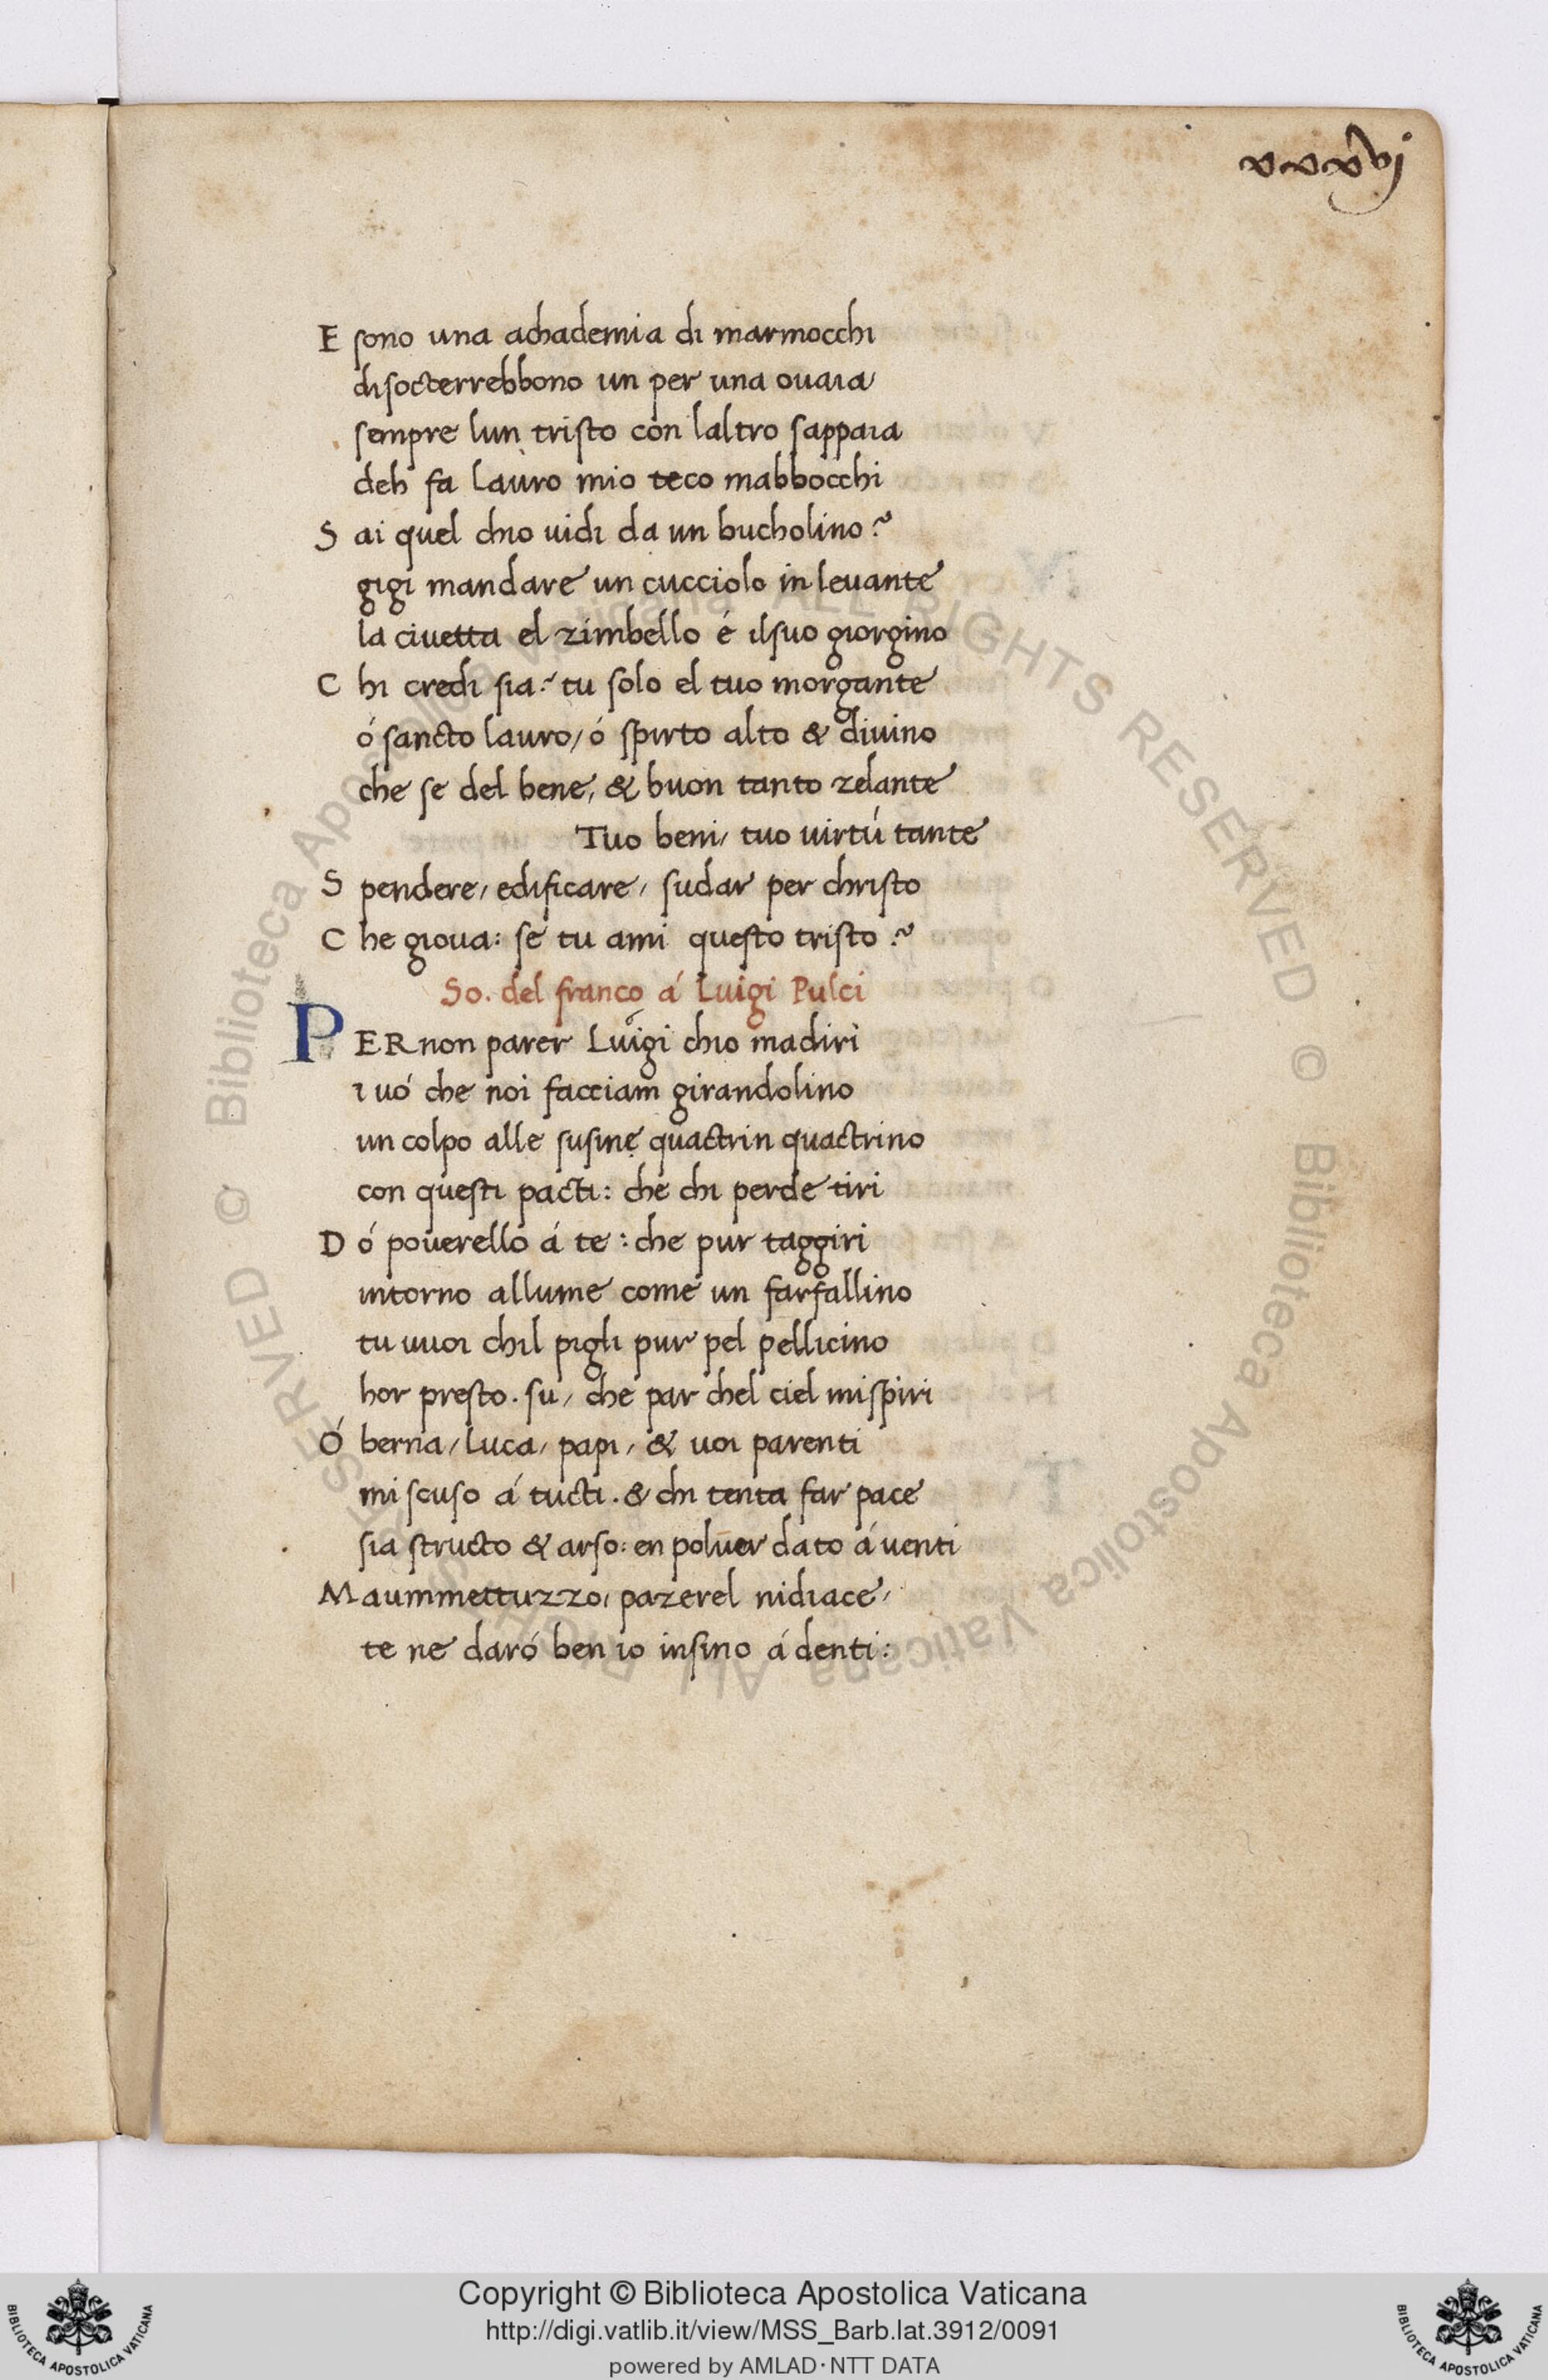 xxxvj
E sono una achademia di marmocchi
disocterrebbono un per una ouaia
sempre lun tristo con laltro sappaia
deh fa lauro mio teco mabbocchi
S ai quel chio uidi da un bucholino?
gigi mandare un cucciolo in leuante
la ciuetta el zimbello é ilsuo giorgino
C hi credi sia? tu solo el tuo morgante
ó sancto lauro/ ó spirto alto & diuino
che se del bene, & buon tanto zelante
Tuo beni/ tuo uirtú tante
S pendere/ edificare/ sudar per christo
C he gioua: se tu ami questo tristo?
So. del franco á Luigi Pulci
PER non parer Luigi chio madiri
i uó che noi facciam girandolino
un colpo alle susine quactrin quactrino
con questi pacti: che chi perde tiri
D ó pouerello á te: che pur taggiri
intorno allume come un farfallino
tu uuoi chil pigli pur pel pellicino
hor presto. su/ che par chel ciel mispiri
Ó berna/ luca/ papi/ & uoi parenti
mi scuso á tucti. & chi tenta far pace
sia structo & arso: en poluer dato á uenti
M aummettuzzo/ pazerel nidiace/
te ne daró ben io insino á denti:
© Biblioteca Apostolica Vaticana ALL RIGHTS RESERVED © Biblioteca Apostolica Vaticana ALL RIGHTS RESERVED
Copyright © Biblioteca Apostolica Vaticana
http://digi.vatlib.it/view/MSS_Barb.lat.3912/0091
powered by AMLAD·NTT DATA
BIBLIOTECA APOSTOLICA VATICANA
BIBLIOTECA APOSTOLICA VATICANA